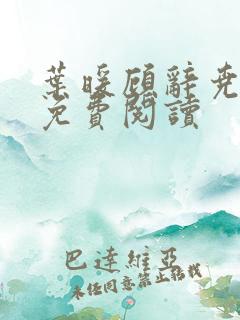 葉暖顧辭堯
免費閱讀
巴達維亞
未經同意禁止轉載